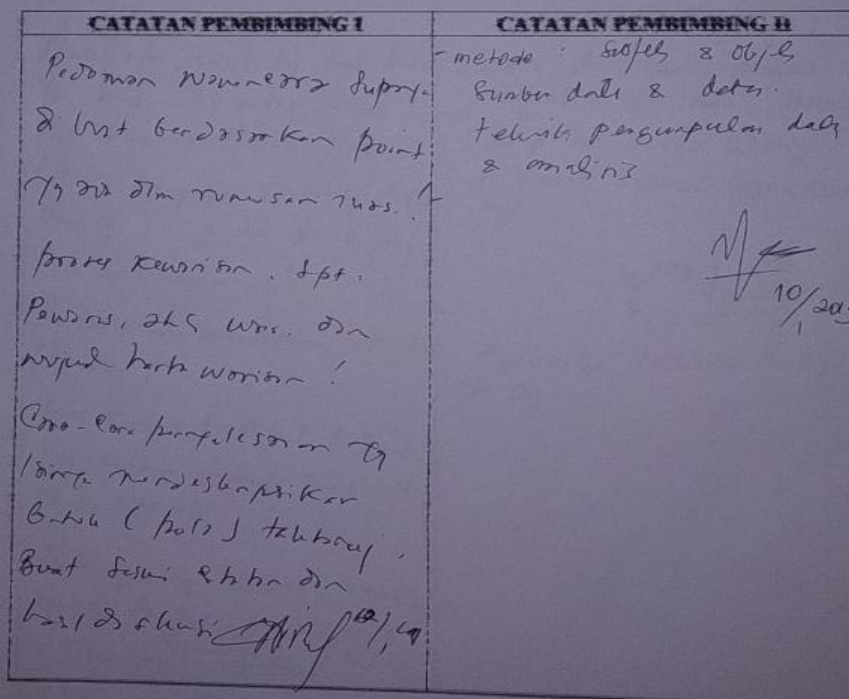 CATATAN PEMBIMBING I
Pedoman wawancara supaya
di buat berdasarkan point
yg ada dlm rumusan
proses kewarisan. spt.
Pewaris, ahli waris. dan
wujud harta warisan!
Cara-cara penyelesaian yg
mendeskripsikan
bentuk (pola)
Buat sesuai dan
hasil diskusi
CATATAN PEMBIMBING II
- metode : subjek & objek
Sumber data & data.
teknik pengumpulan data
& analisis
10/1